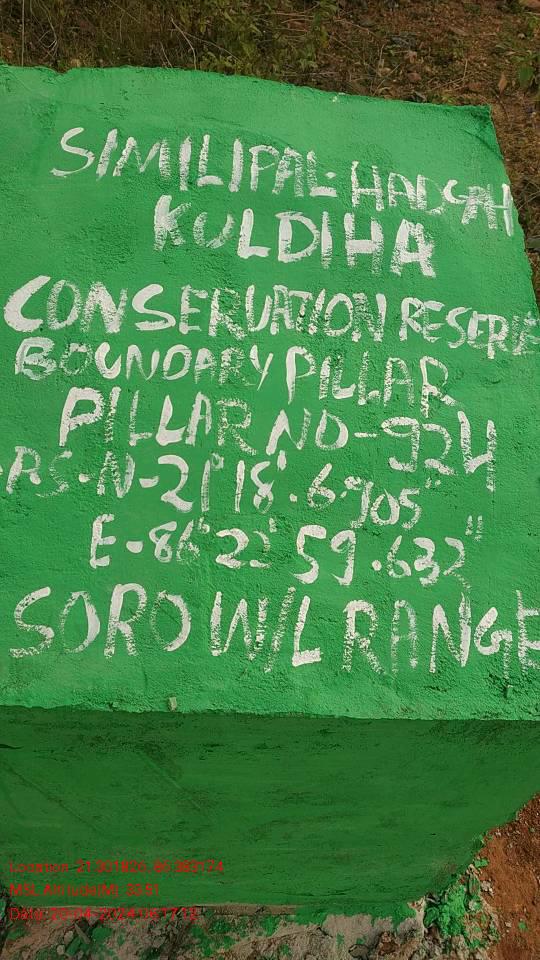 SIMILIPAL-HADGAH
KULDIHA
CONSERVATION RESERVE
BOUNDARY PILLAR
PILLAR NO-924
PS-N-21°18'.6.705"
E-86°22' 59.632"
SORO W/L RANGE
Location: 21.301826, 86.383174
MSL Altitude(M): 33.91
Date: 20-04-2024